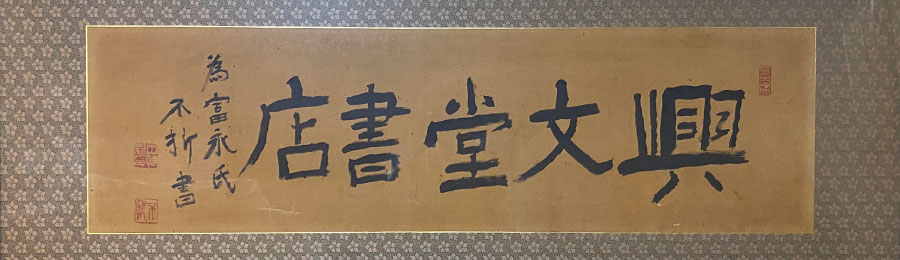 興文堂書店
為富永氏
不折書